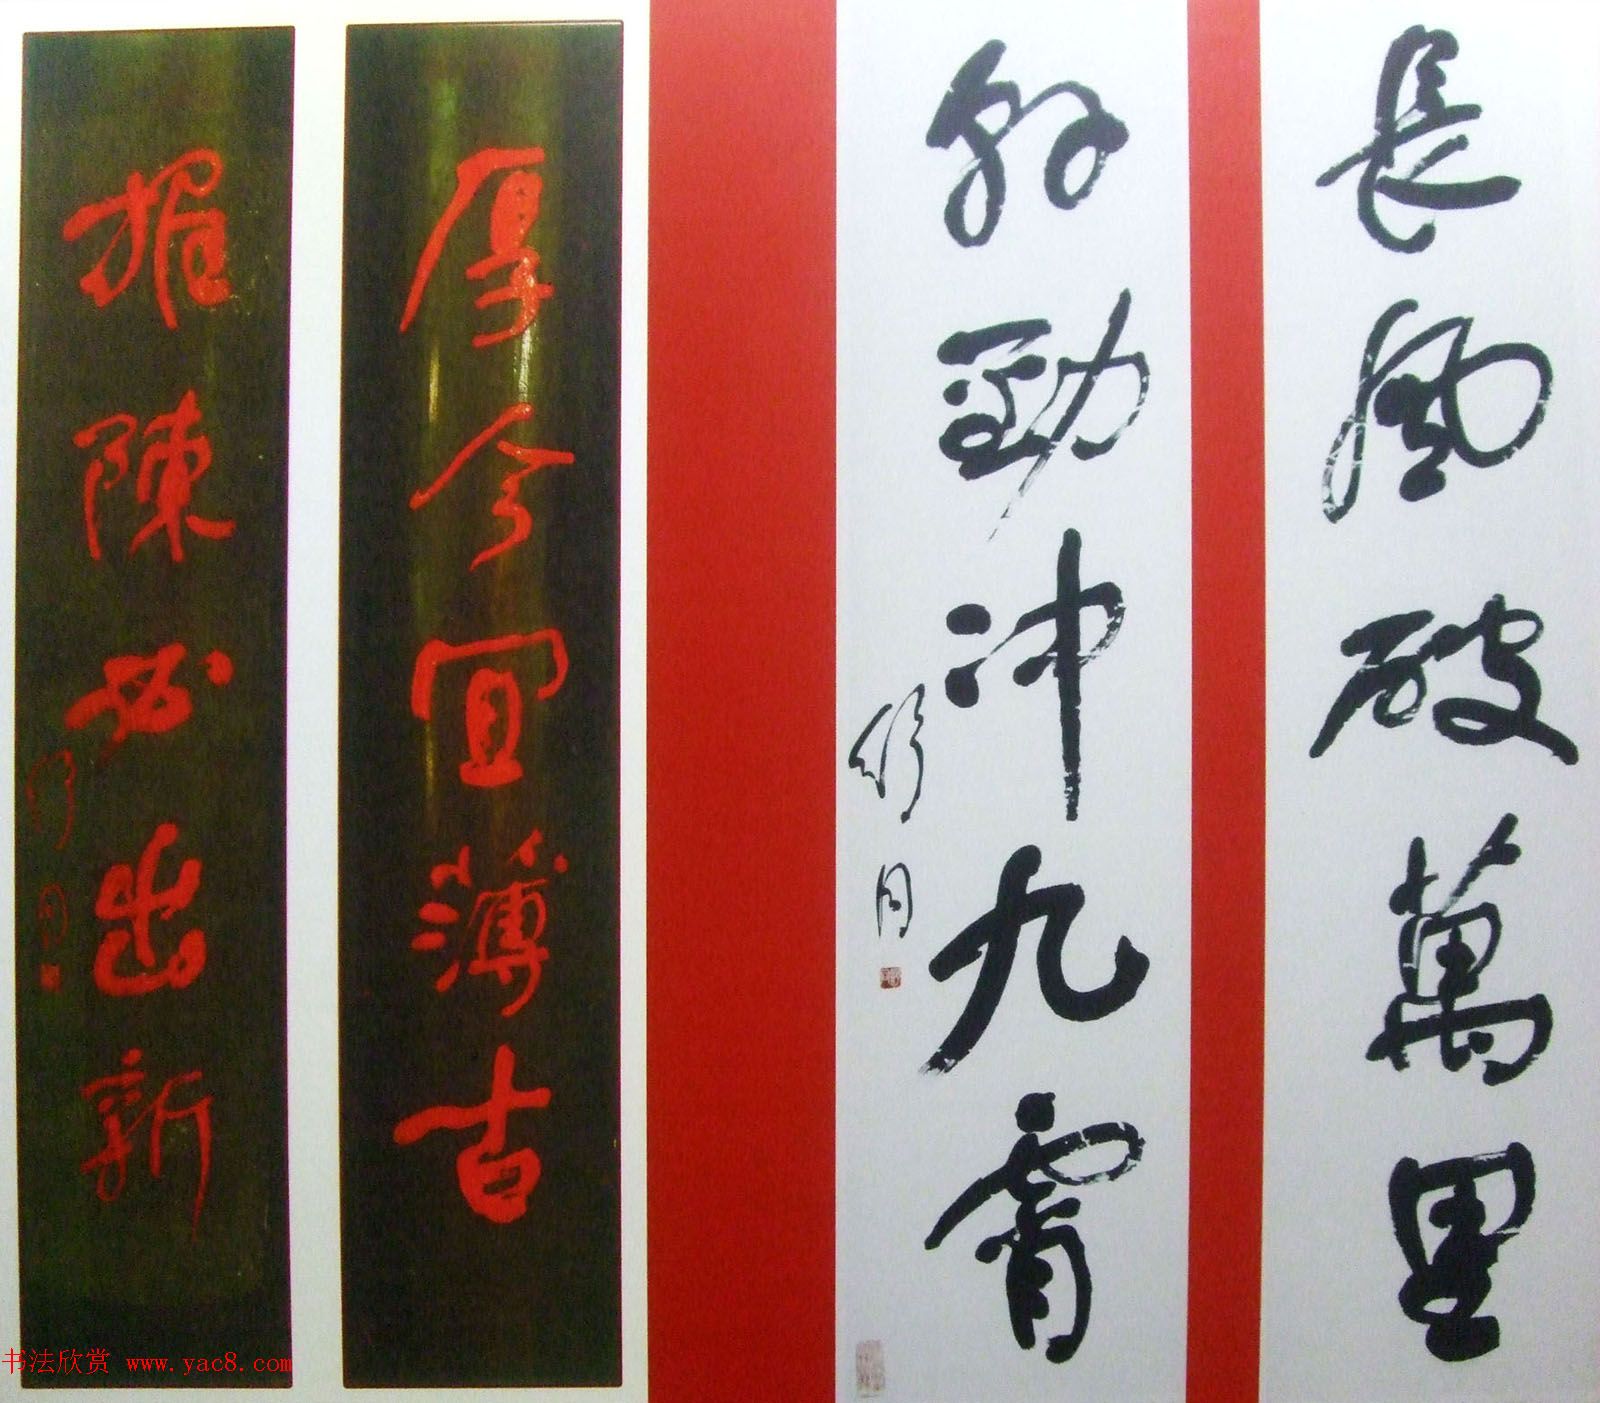 長風破萬里
幹勁冲九霄
舒同
厚今宜薄古
推陳必出新
舒同
书法欣赏 www.yac8.com